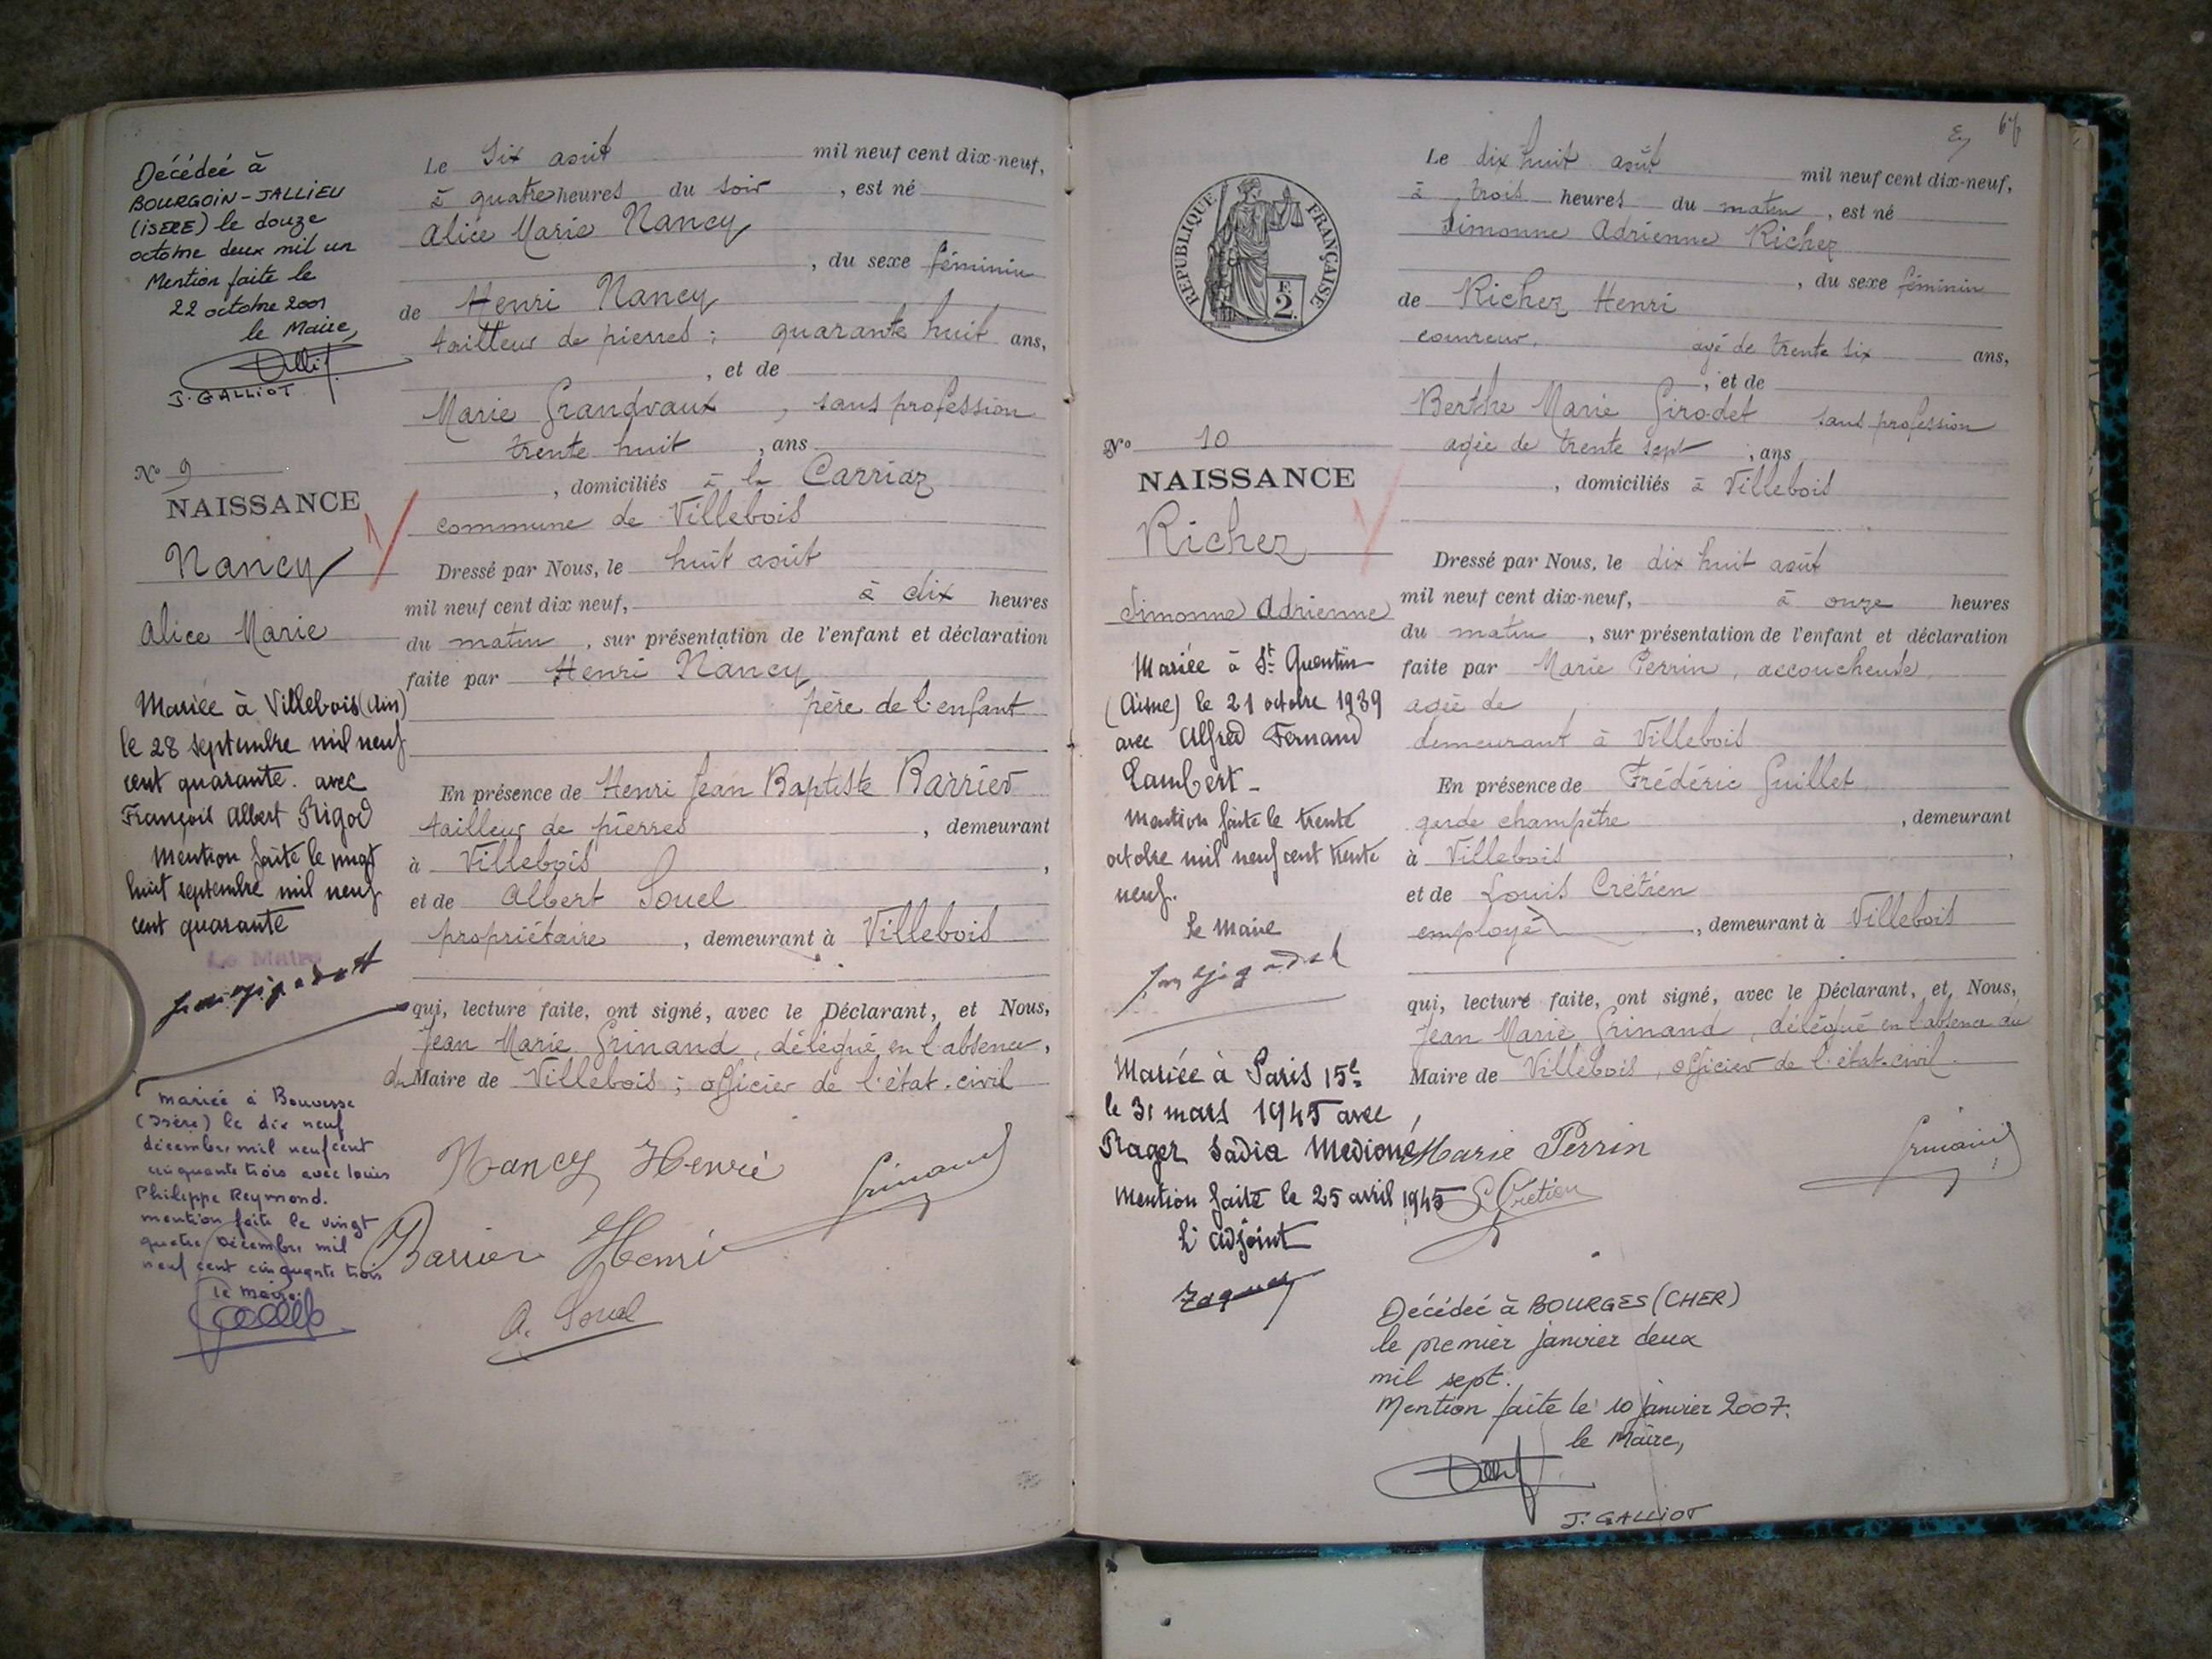 Décédée à
BOURGOIN-JALLIEU
(ISERE) le douze
octobre deux mil un
Mention faite le
22 octobre 2001
le Maire,
J. GALLIOT
N° 9
NAISSANCE
Nancy
Alice Marie
Mariée à Villebois (Ain)
le 28 septembre mil neuf
cent quarante. avec
François Albert Rigod
Mention faite le vingt
huit septembre mil neuf
cent quarante
Le Maire
mariée à Bouvesse
(Isère) le dix neuf
décembre mil neuf cent
cinquante trois avec Louis
Philippe Reymond.
mention faite le vingt
quatre Décembre mil
neuf cent cinquante trois
le maire.
Le Six août mil neuf cent dix-neuf,
à quatre heures du soir , est né
Alice Marie Nancy
, du sexe féminin
de Henri Nancy
tailleur de pierres ; quarante huit ans,
, et de
Marie Grandvaux , sans profession
trente huit , ans
, domiciliés à la Carriaz
commune de Villebois
Dressé par Nous, le huit août
mil neuf cent dix neuf, à dix heures
du matin , sur présentation de l'enfant et déclaration
faite par Henri Nancy
père de l'enfant
En présence de Henri Jean Baptiste Barrier
tailleur de pierres , demeurant
à Villebois ,
et de Albert Souel
propriétaire , demeurant à Villebois
qui, lecture faite, ont signé, avec le Déclarant, et Nous,
Jean Marie Grinand, délégué en l'absence,
du Maire de Villebois ; officier de l'état-civil
Nancy Henri
Grinand
Barrier Henri
A. Souel
67
REPUBLIQUE FRANÇAISE
F.
2.
N° 10
NAISSANCE
Richez
Simonne Adrienne
Mariée à St Quentin
(Aisne) le 21 octobre 1939
avec Alfred Fernand
Lambert -
Mention faite le trente
octobre mil neuf cent trente
neuf.
Le Maire
Mariée à Paris 15e
le 31 mars 1945 avec
Roger Sadia Medioni
Mention faite le 25 avril 1945
L'adjoint
Le dix huit août mil neuf cent dix-neuf,
à trois heures du matin , est né
Simonne Adrienne Richez
, du sexe féminin
de Richez Henri
couvreur, agé de trente six ans,
, et de
Berthe Marie Girodet sans profession
agée de trente sept , ans
, domiciliés à Villebois
Dressé par Nous, le dix huit août
mil neuf cent dix-neuf, à onze heures
du matin , sur présentation de l'enfant et déclaration
faite par Marie Perrin, accoucheuse
agée de
demeurant à Villebois
En présence de Frédéric Guillet
garde champêtre , demeurant
à Villebois ,
et de Louis Crétien
employé , demeurant à Villebois
qui, lecture faite, ont signé, avec le Déclarant, et Nous,
Jean Marie Grinand, délégué en l'absence du
Maire de Villebois, officier de l'état-civil.
Marie Perrin
Grinand
L Crétien
Décédée à BOURGES (CHER)
le premier janvier deux
mil sept.
Mention faite le 10 janvier 2007.
le Maire,
J. GALLIOT